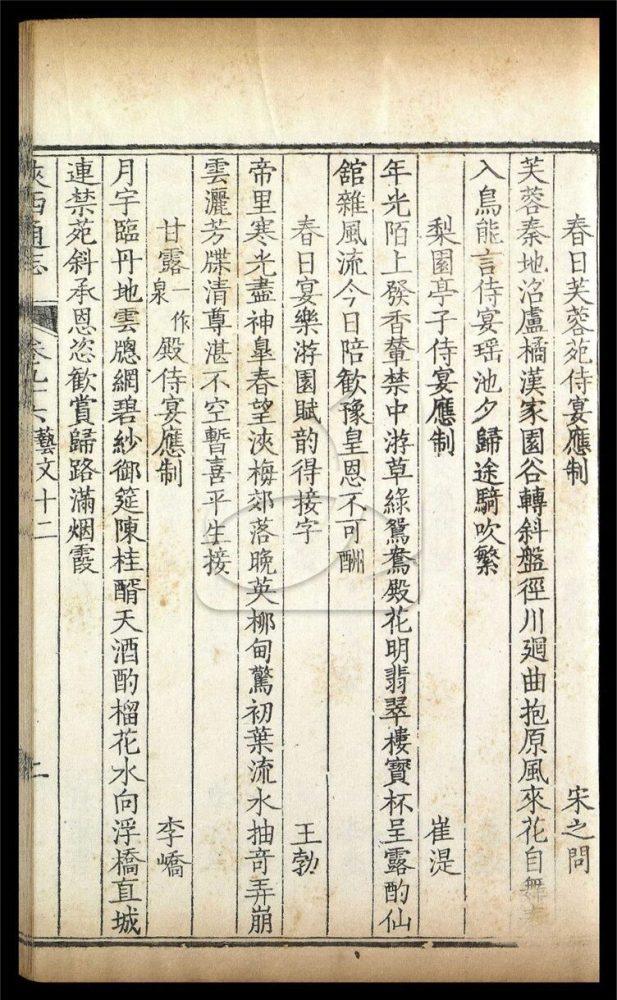 春日芙蓉苑侍宴應制 宋之問
芙蓉秦地沼盧橘漢家園谷轉斜盤徑川廻曲抱原風來花自舞春
入鳥能言侍宴瑶池夕歸途騎吹繁
梨園亭子侍宴應制 崔湜
年光陌上發香輦禁中游草綠鴛鴦殿花明翡翠樓寶杯呈露酌仙
舘雜風流今日陪歡豫皇恩不可酬
春日宴樂游園賦韵得接字 王勃
帝里寒光盡神臯春望浹梅郊落晚英栁甸驚初葉流水抽奇弄崩
雲灑芳牒清尊湛不空暫喜平生接
甘露一作泉殿侍宴應制 李嶠
月宇臨丹地雲牕網碧紗御筵陳桂醑天酒酌榴花水向浮橋直城
連禁苑斜承恩恣歡賞歸路滿烟霞
陜西通志 卷九十六 藝文十二